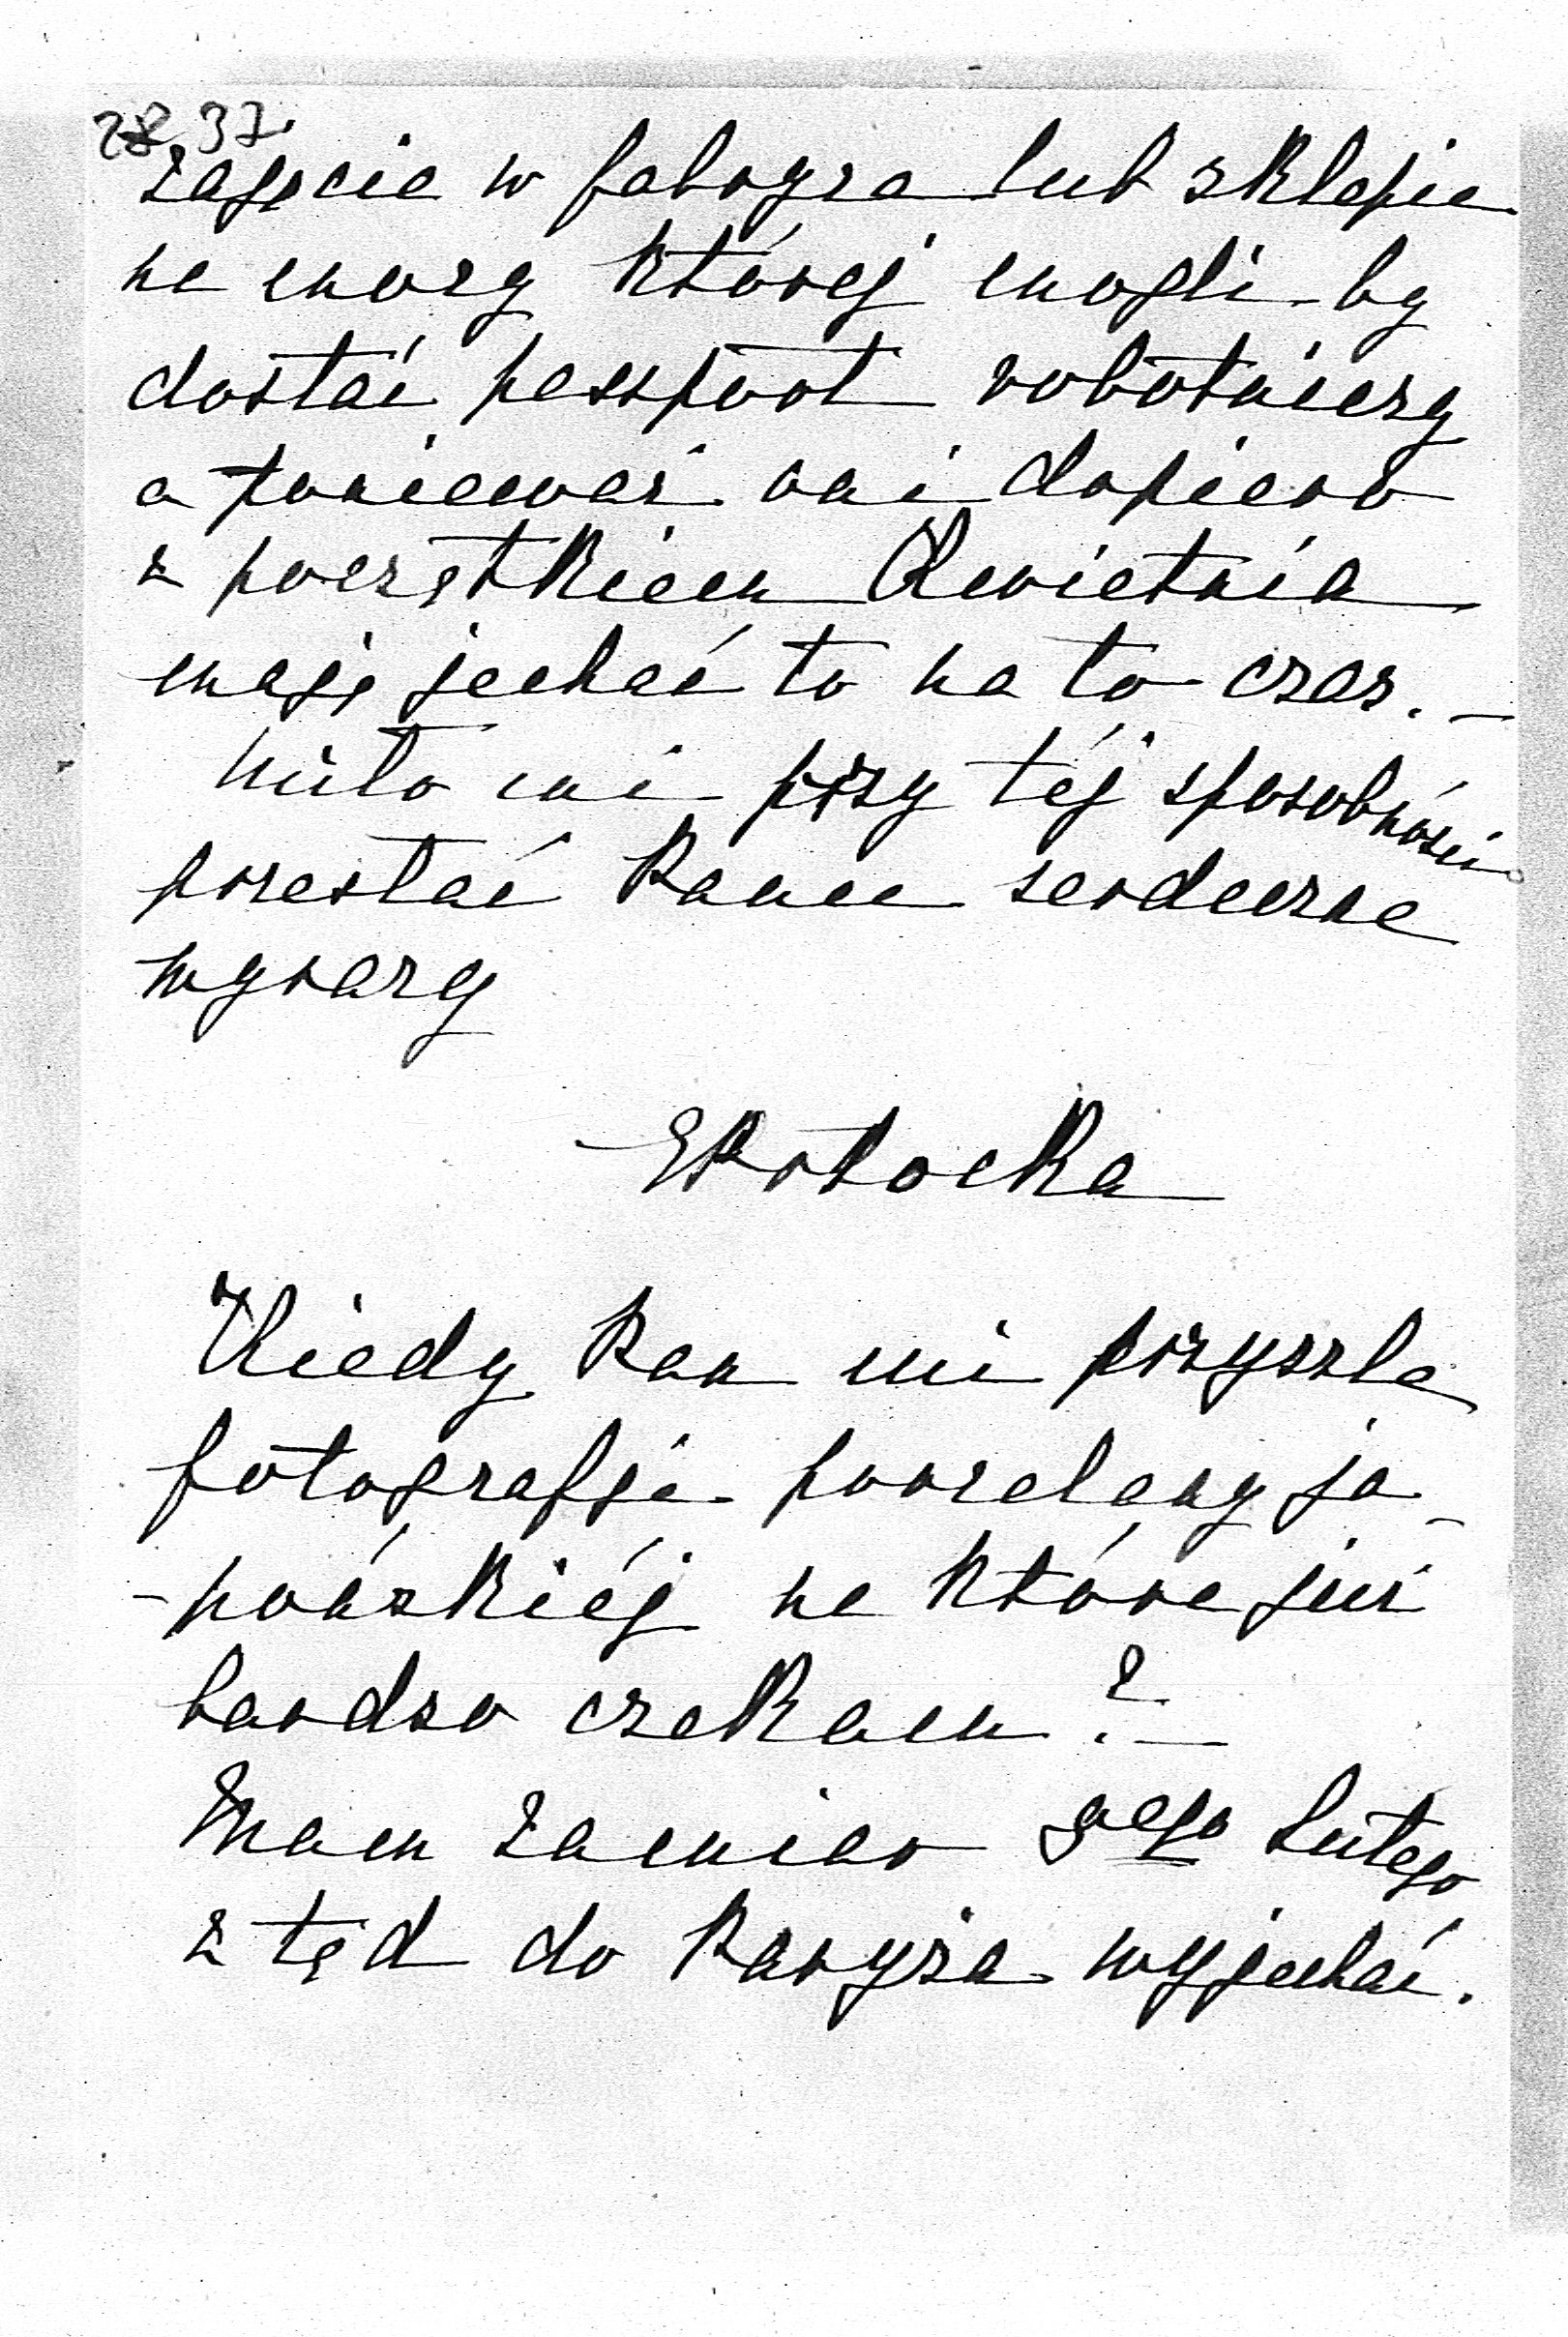 28 37
zajęcie w fabryce lub sklepie
na mocy której mogli by
dostać passport robotniczy
a ponieważ oni dopiero
z początkiem Kwietnia
mają jechać to na to czas. —
Miło mi przy téj sposobności
przesłać Panu serdeczne
wyrazy
EPotocka
Kiedy Pan mi przyszle
fotografje porcelany ja-
-pońskiéj na które już
bardzo czekam? —
Mam zamiar 9ego Lutego
z tąd do Paryża wyjechać.